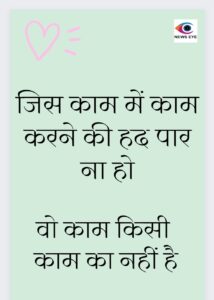 NEWS EYE
जिस काम में काम
करने की हद पार
ना हो
वो काम किसी
काम का नहीं है